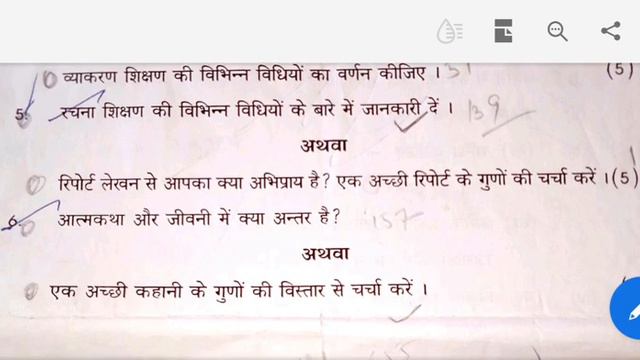 व्याकरण शिक्षण की विभिन्न विधियों का वर्णन कीजिए । (5)
5. रचना शिक्षण की विभिन्न विधियों के बारे में जानकारी दें । 139
अथवा
रिपोर्ट लेखन से आपका क्या अभिप्राय है? एक अच्छी रिपोर्ट के गुणों की चर्चा करें ।(5)
6. आत्मकथा और जीवनी में क्या अन्तर है? 157
अथवा
एक अच्छी कहानी के गुणों की विस्तार से चर्चा करें ।